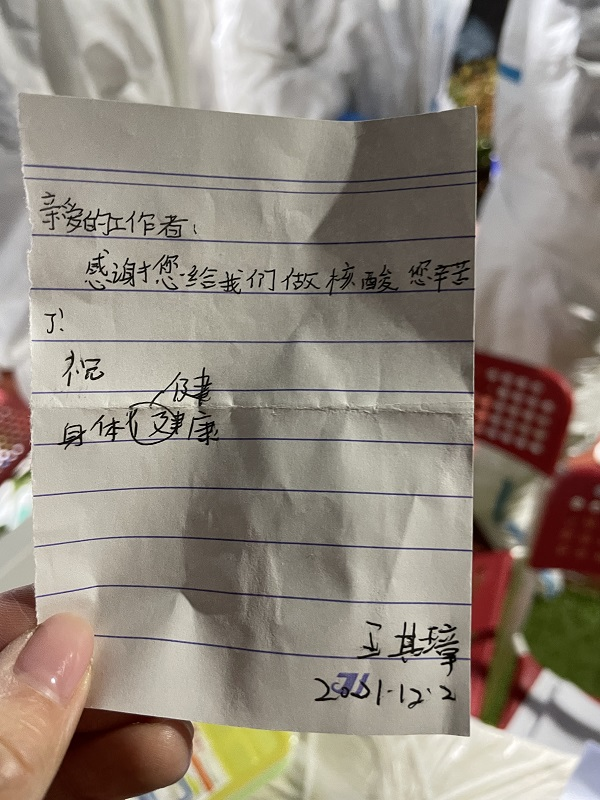 亲爱的工作者：
感谢您给我们做核酸 您辛苦
了！
祝
健
身体健康
王其璋
2021.12.2